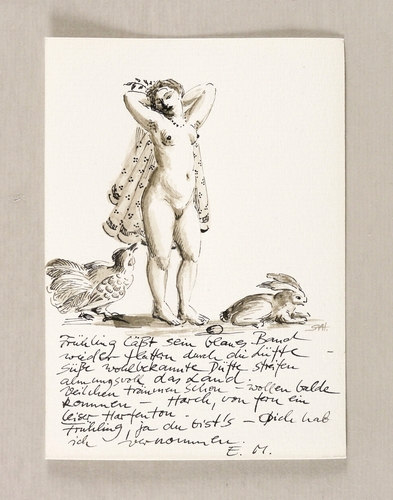 Frühling läßt sein blaues Band
wieder flattern durch die Lüfte -
Süße wohlbekannte Düfte streifen
ahnungsvoll das Land.
Veilchen träumen schon - wollen balde
kommen - Horch, von fern ein
leiser Harfenton -
Frühling, ja du bist's - Dich hab
ich vernommen.
E. M.